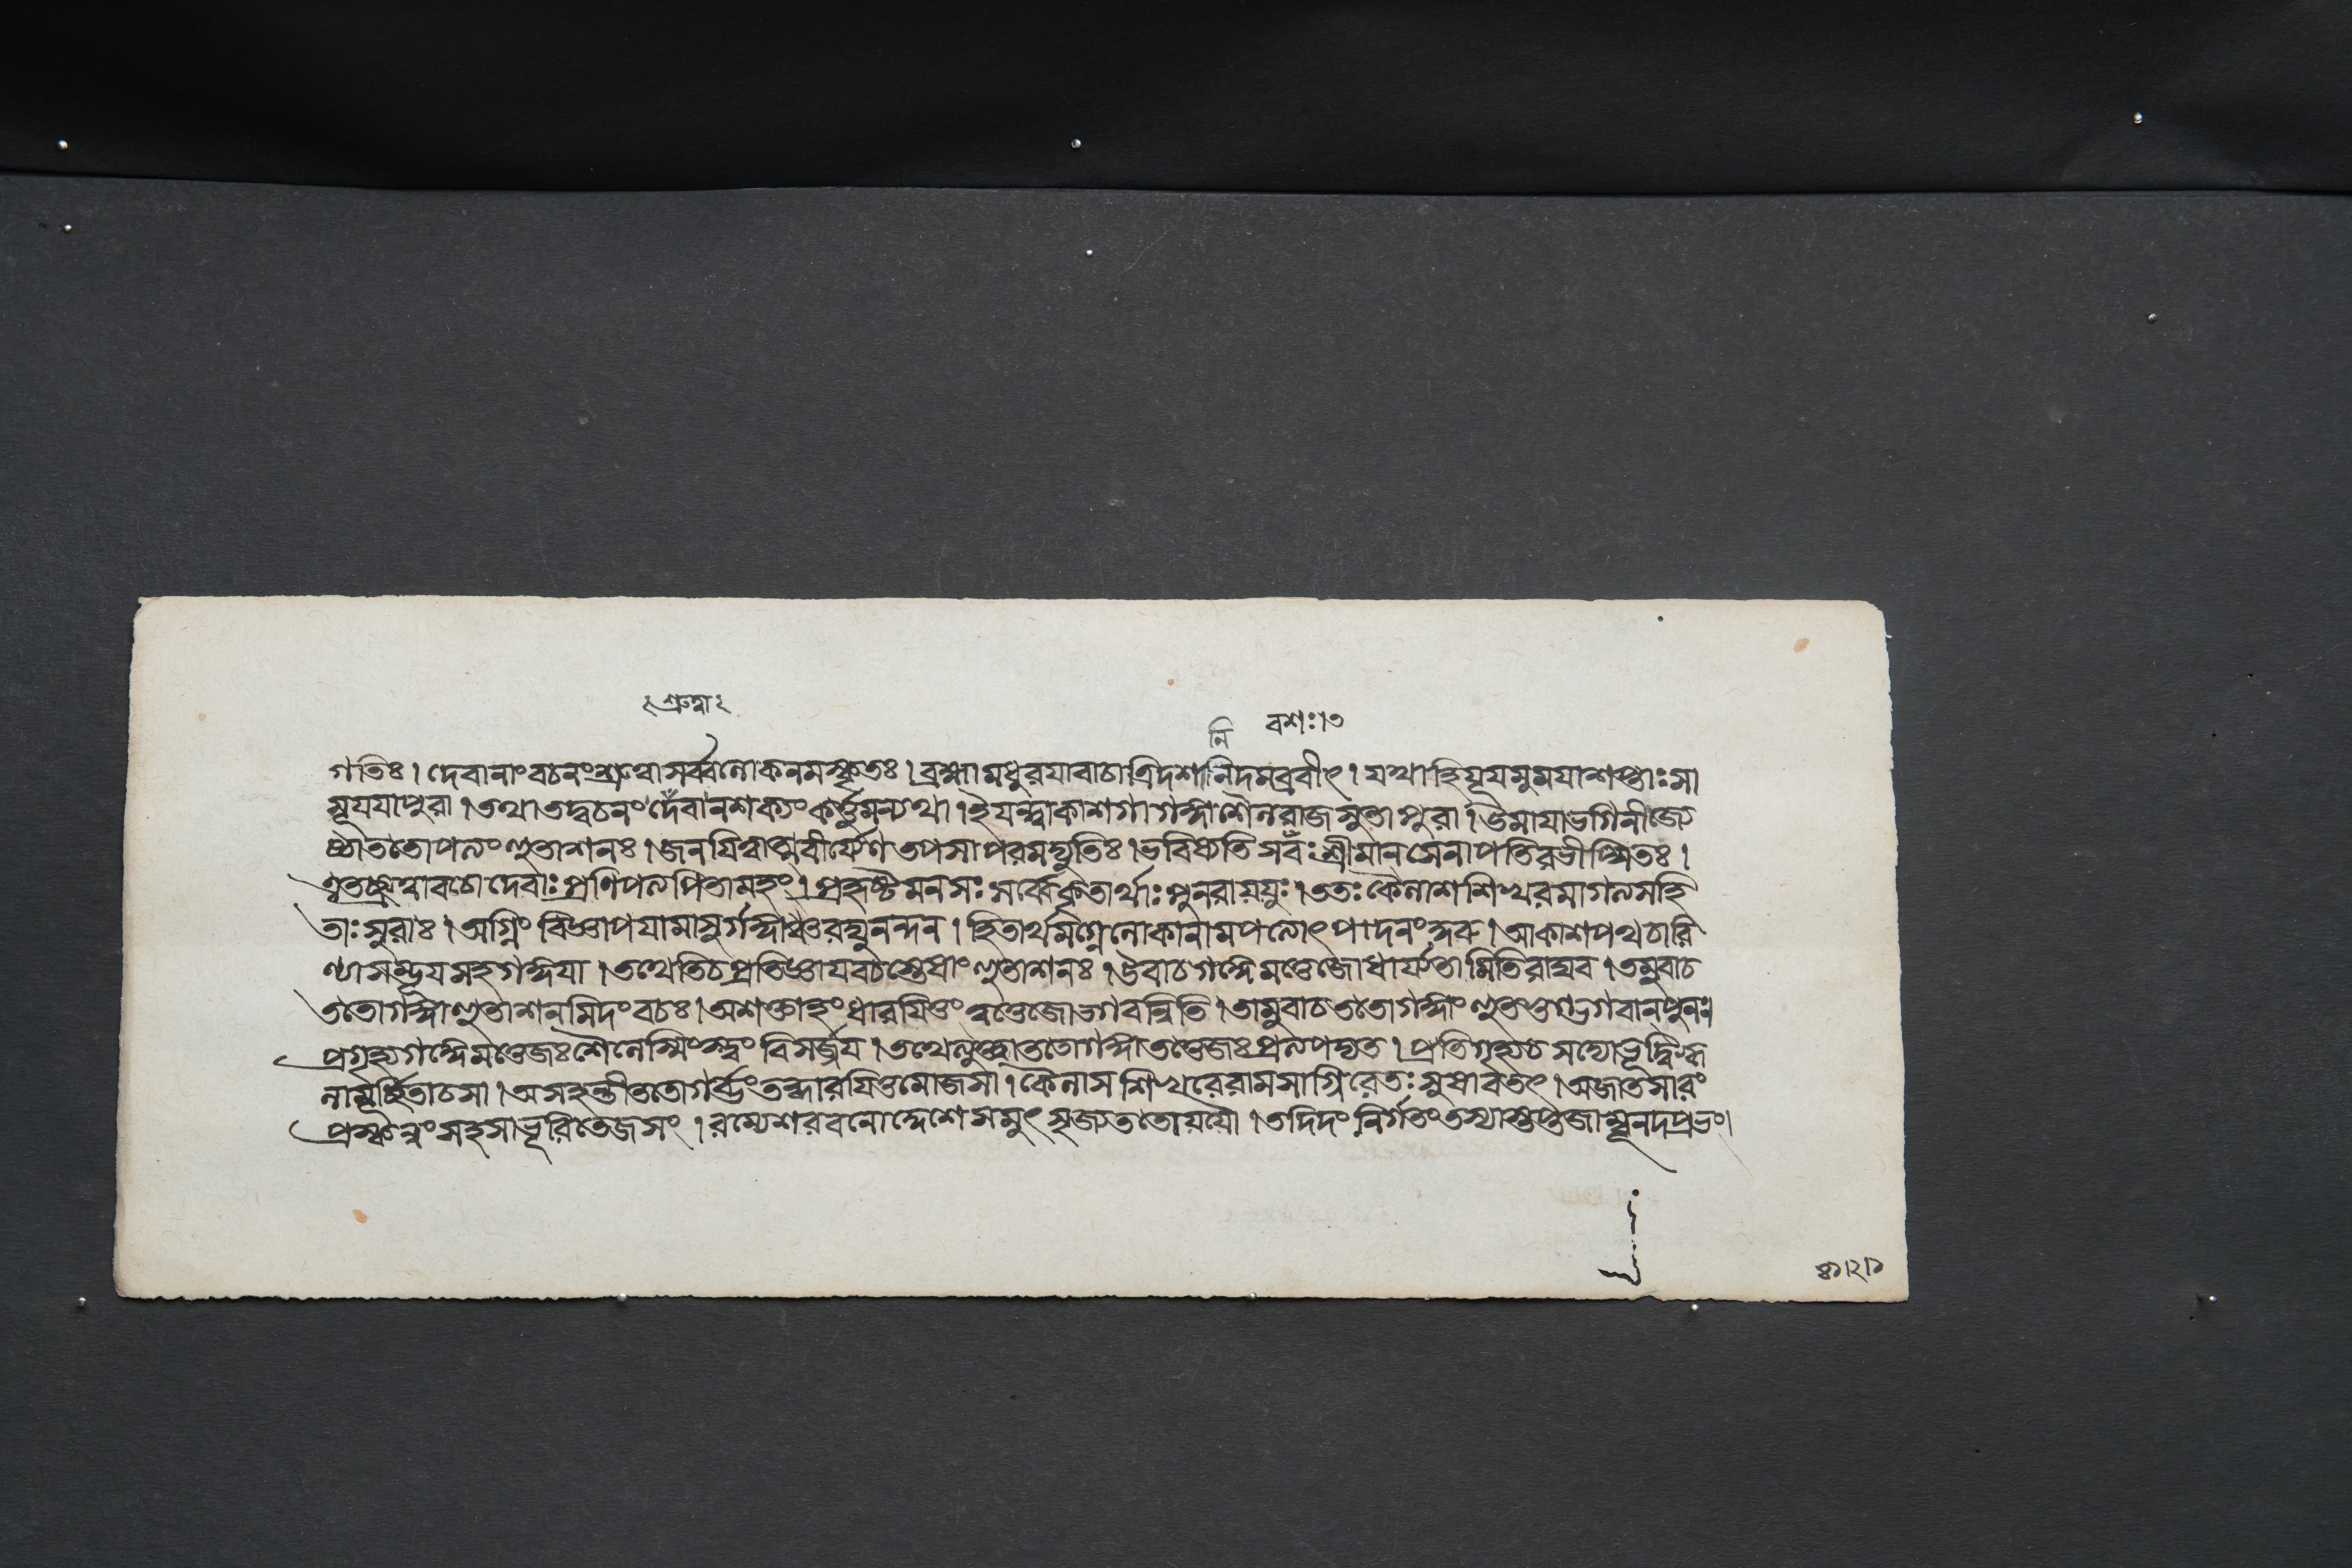 শ্রুত্বা
নি বশঃ।৩
গতিঃ। দেবানাং বচনং শ্রুত্বা সর্ব্বলোকনমস্কৃতঃ। ব্রহ্মা মধুরয়া বাচা ত্রিদশানিদমব্রবীৎ। যথা হি যূয়মুময়া শপ্তাঃ সা
সূয়য়া পুরা। তথা তদ্বচনং দেবা ন শক্যং কর্ত্তুমন্যথা। ইয়ন্ত্বাকাশগা গঙ্গা শৈলরাজসুতা সুরা। উমায়া ভগিনী জ্যে
ষ্ঠা ততোপত্যং হুতাশনঃ। জনয়িত্বাত্মবীর্য্যেণ তপসা পরমদ্যুতিঃ। ভবিষ্যতি স বঃ শ্রীমান সেনাপতিরভীপ্সিতঃ।
এতচ্ছ্রুত্বা বচো দেবাঃ প্রণিপত্য পিতামহং। প্রহৃষ্টমনসঃ সর্ব্বে কৃতার্থাঃ পুনরায়য়ুঃ। ততঃ কৈলাশশিখরমাগত্য সহি
তাঃ সুরাঃ। অগ্নিং বিজ্ঞাপয়ামাসুর্গঙ্গাঞ্চ রঘুনন্দন। হিতার্থমগ্নে লোকানামপত্যোৎপাদনং কুরু। আকাশপথচারি
ণ্যা সম্ভূয় সহ গঙ্গয়া। তথেতি চ প্রতিজ্ঞায় বচস্তেষাং হুতাশনঃ। উবাচ গঙ্গে মত্তেজো ধার্য্যতামিতি রাঘব। তমুবাচ
ততো গঙ্গা হুতাশনমিদং বচঃ। অশক্তাহং ধারয়িতুং ত্বত্তেজো ভগবন্নিতি। তামুবাচ ততো গঙ্গাং হুতভুগ্ভগবান পুনঃ।
প্রগৃহ্য গঙ্গে মত্তেজঃ শৈলেস্মিংস্ত্বং বিসর্জ্জয়। তথেত্যুক্ত্বা ততো গঙ্গা তত্তেজঃ প্রত্যপদ্যত। প্রতিগৃহ্য চ সদ্যোভূদ্বিহ্ব
লা মূর্চ্ছিতা চ সা। অসহন্তী ততো গর্ব্ভং তদ্ধারয়িতুমোজসা। কৈলাস শিখরে রাম সাগ্নিরেতঃ সুস্রাব তৎ। অজাতসারং
প্রস্কন্নং সহসা ভূরিতেজসং। রম্যে শরবনোদ্দেশে সমুৎসৃজ্য ততো যযৌ। তদিদং নির্গতং তস্যাস্তপ্তজাম্বূনদপ্রভং।